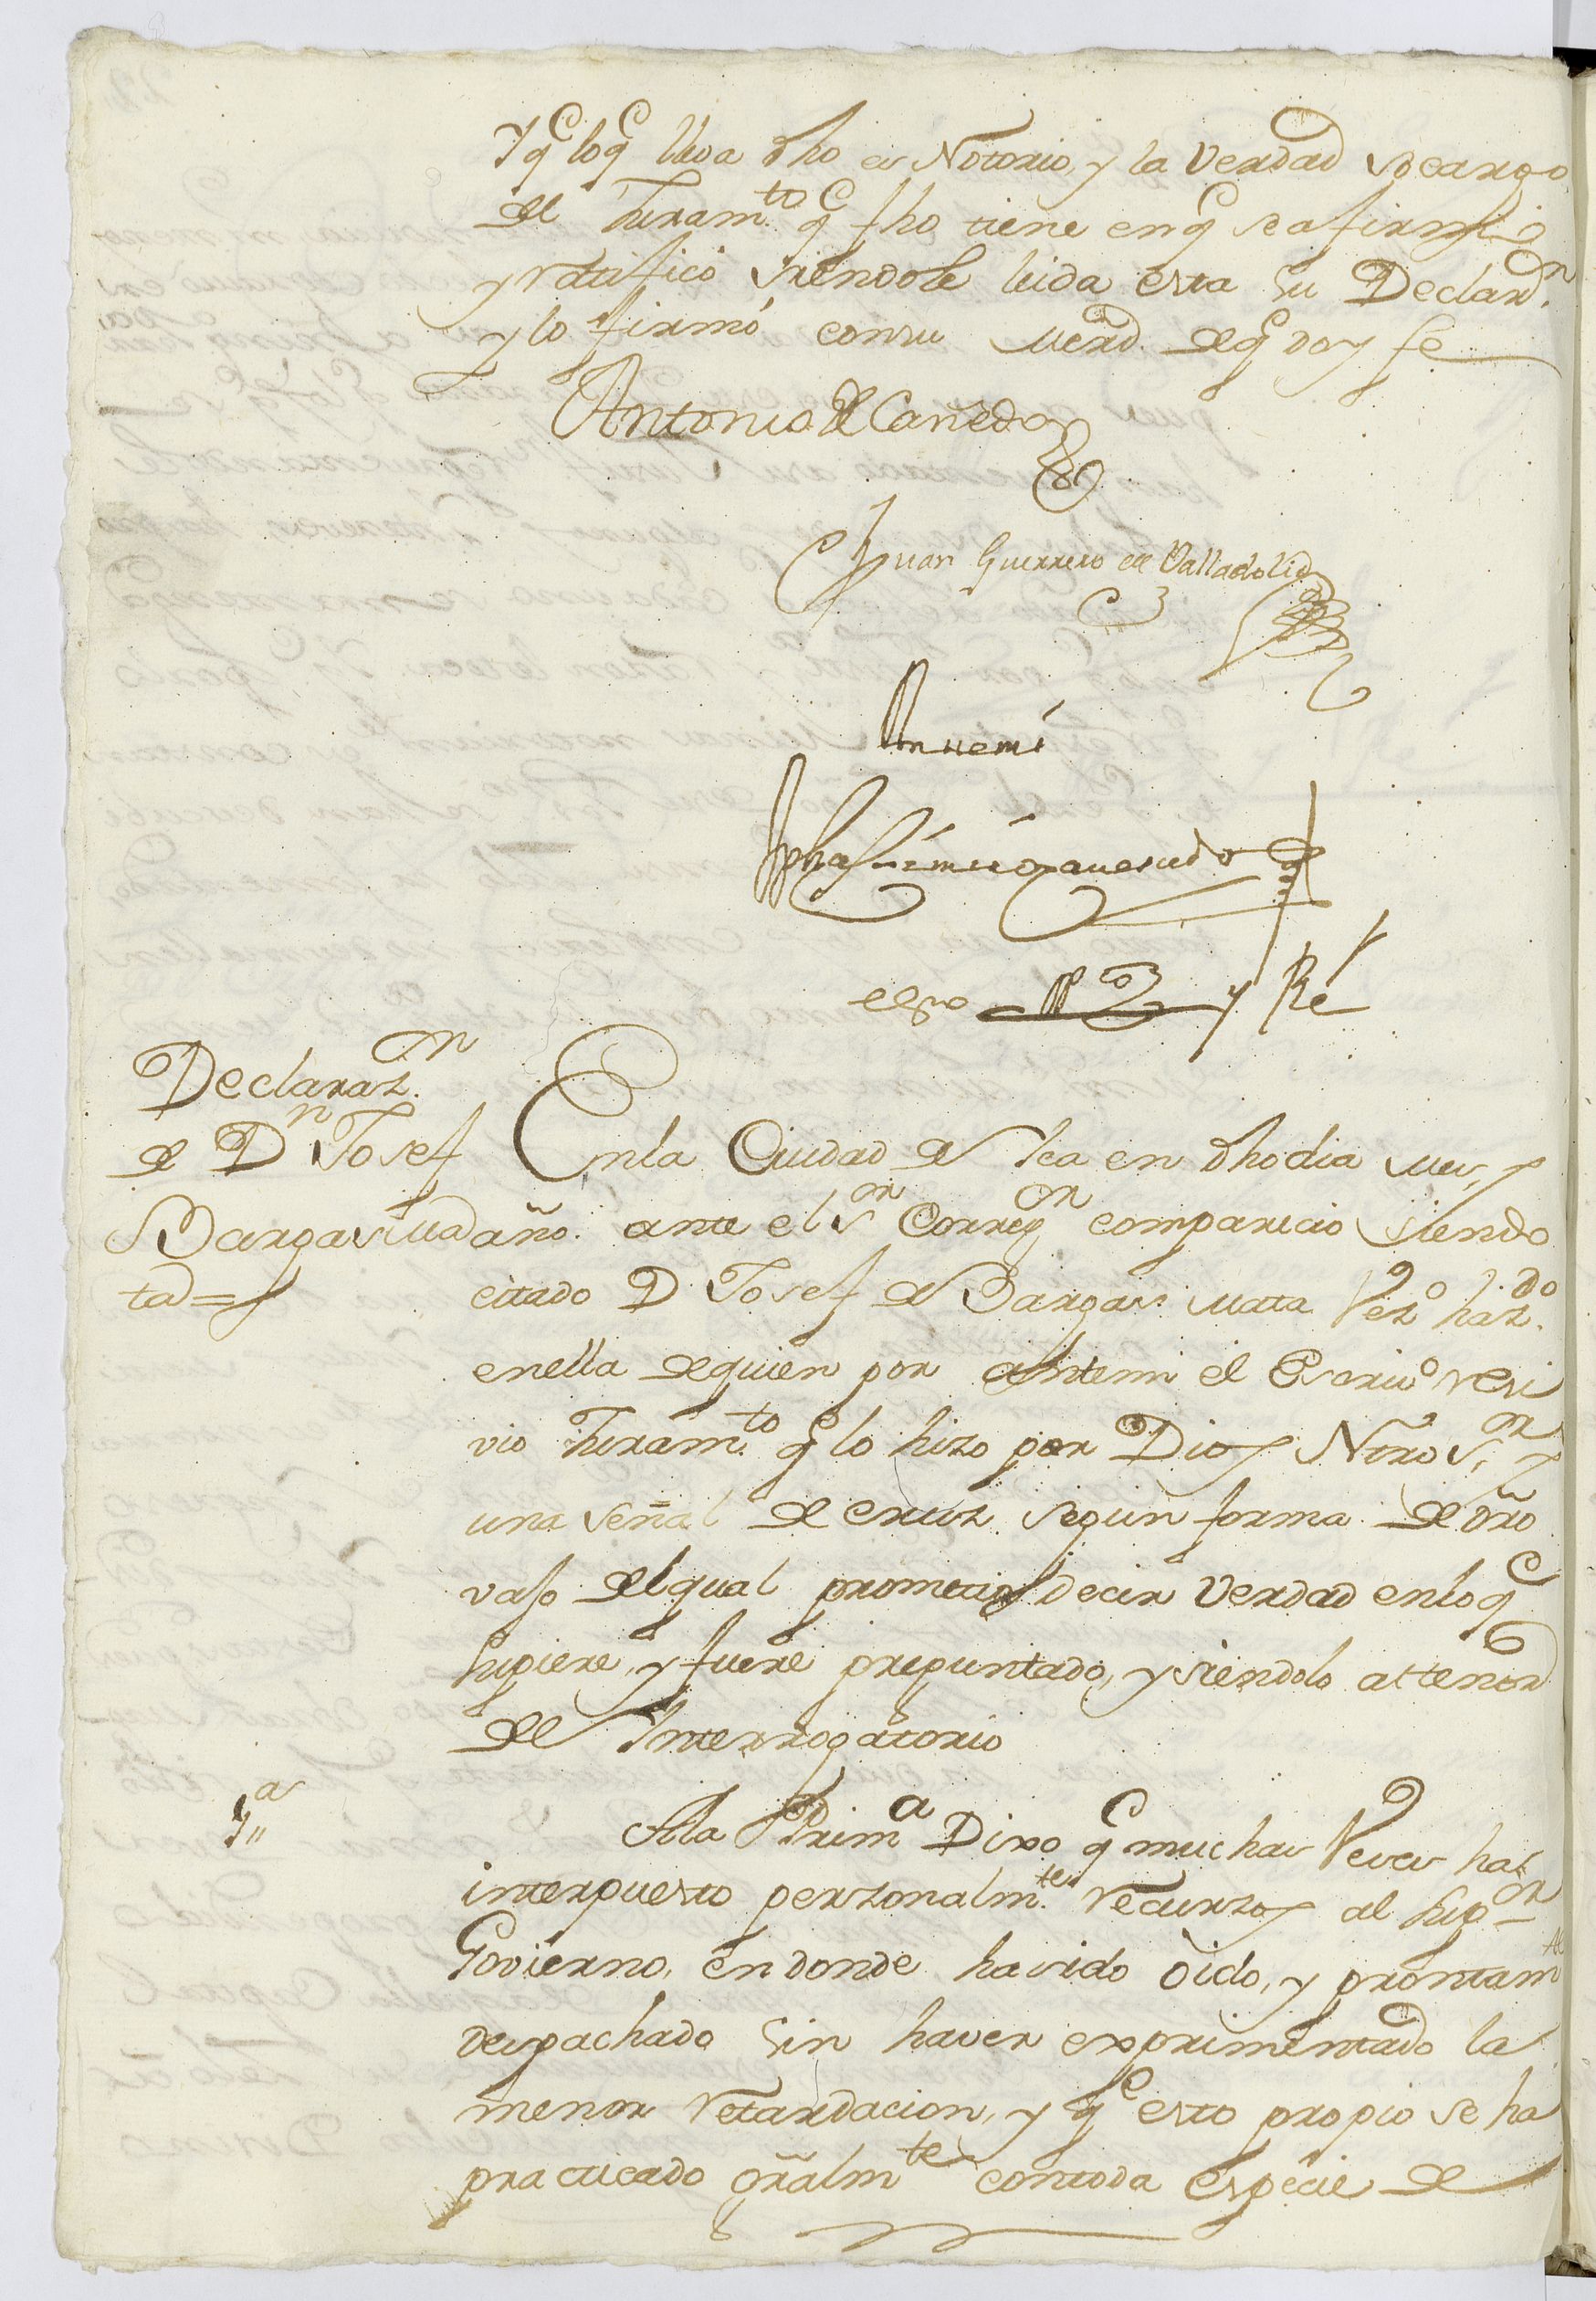 Yq.e loq.e lleva dho es Notorio, y la Verdad so cargo
del Juram.to q.e fho tiene enq.e se afirmó
y ratificó siendole leida esta su Declaraz.n
y lo firmó con su merd. deq.e doy fe
Antonio de Cañedo
Juan Guerrero de Valladolid
Antemi
esno pp.co y Rl
Declaraz.on
de D.n Josef
Bargas Ma
ta =
En la Ciudad de Ica en dho dia mes, y
año. ante el S.or Correg.or comparecio siendo
citado D Josef de Bargas Mata Vez.o haz.do
enella de quien por antemi el Escriv.o resi
vio Juram.to q.e lo hizo por Dios Ntro S.or y
una señal de cruz segun forma de dro
vaso del qual prometio decir Verdad enloq.e
supiere, y fuere preguntado, y siendolo al tenor
del Interrogatorio
1.a
Ala Prim.a Dixo q.e muchas Veces ha
interpuesto perzonalm.te recurzos al Sup.or
Govierno, en donde ha sido oido, y prontam.te
despachado sin haver exprimentado la
menor retardacion, y q.e esto propio se ha
practicado gralm.te con toda especie de